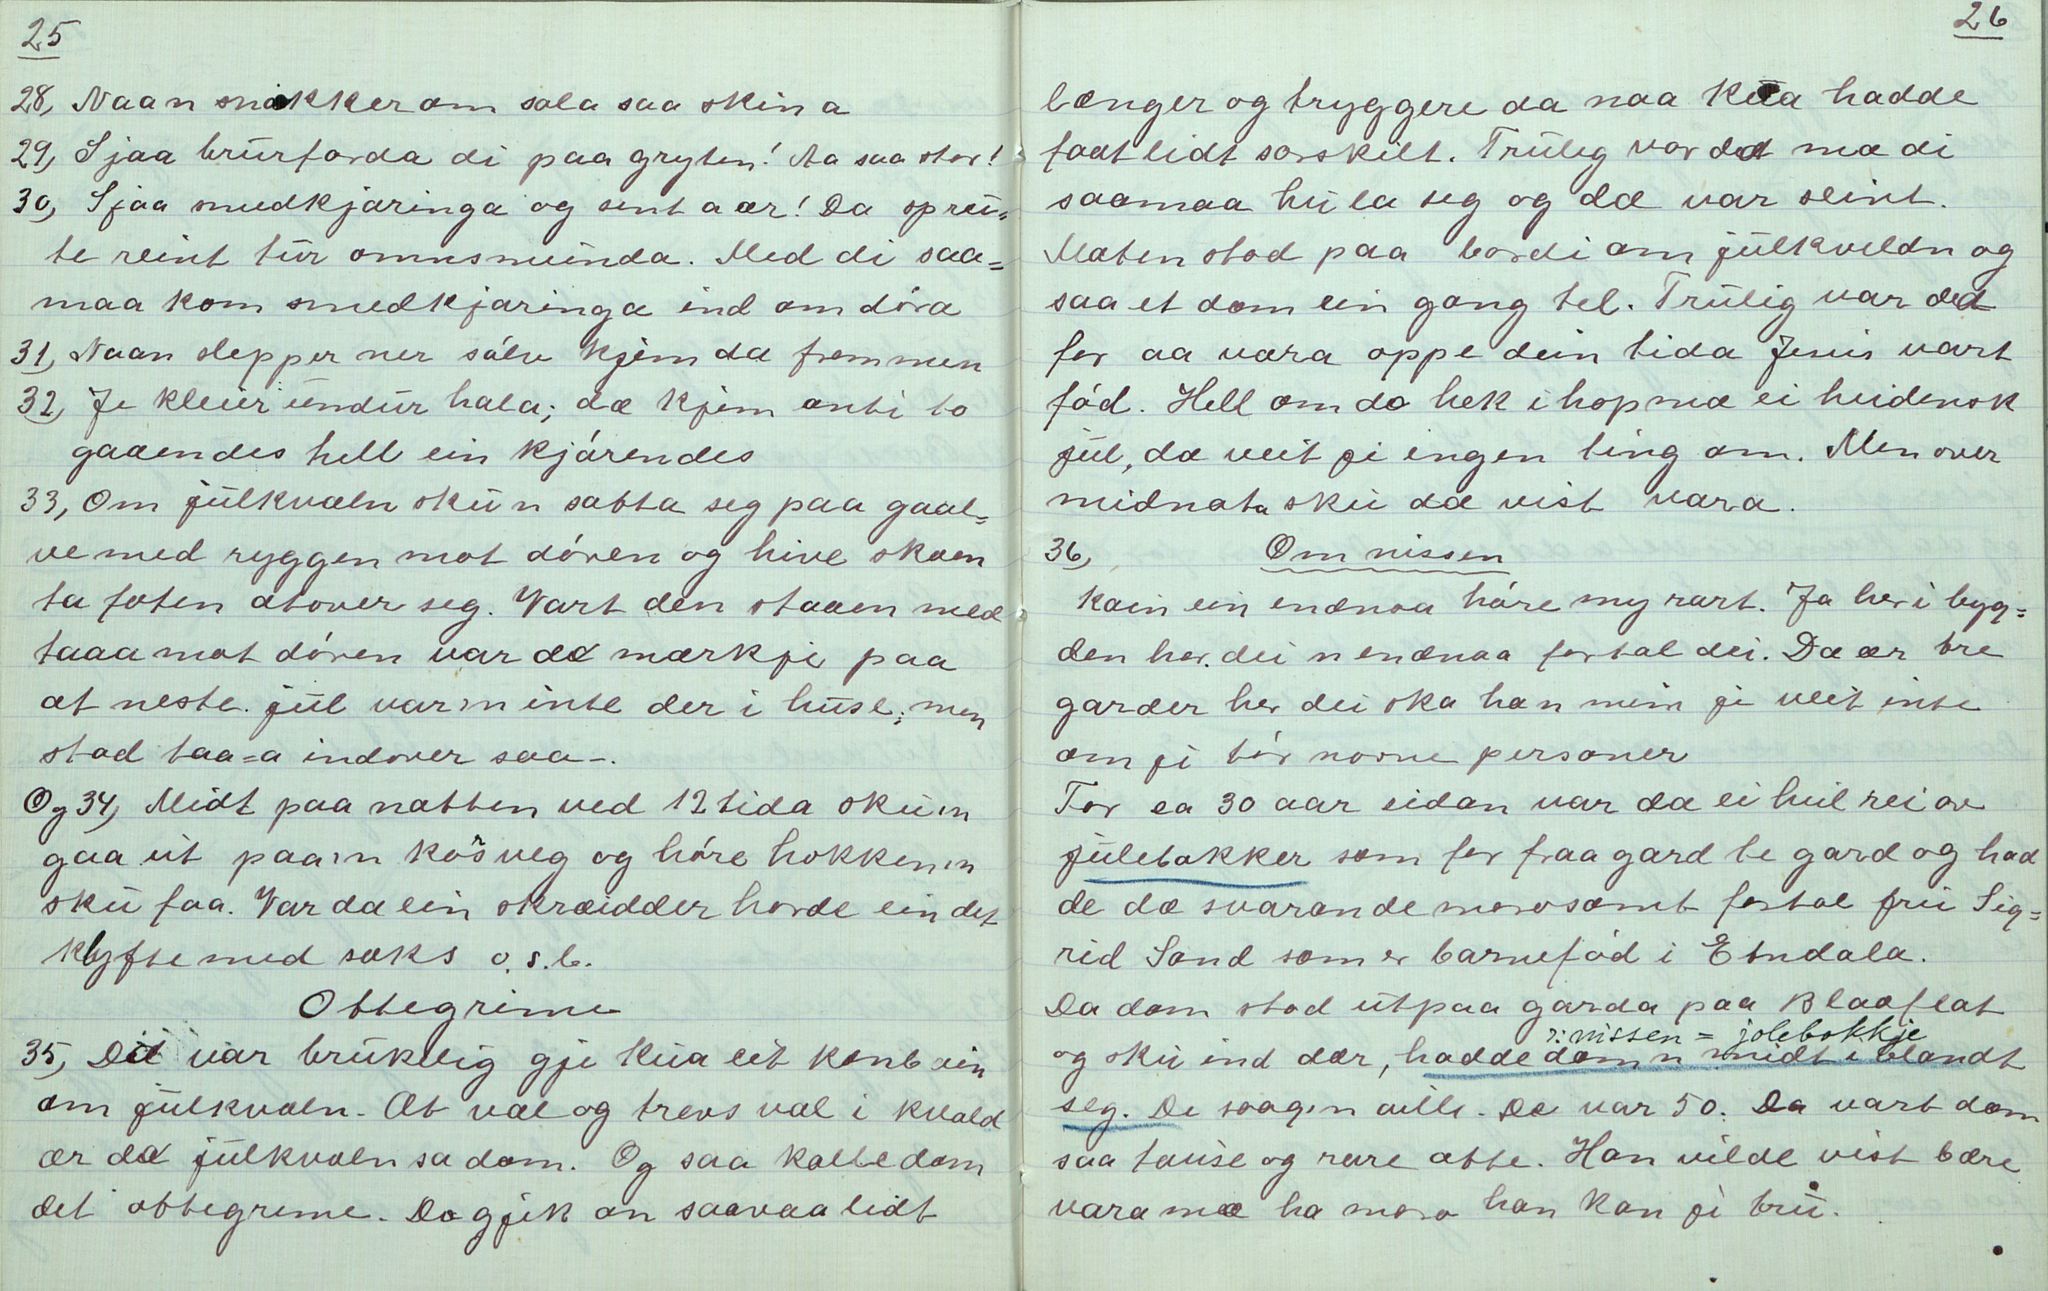 25
28, Naan snakker om sola saa skin a
29, Sjaa brurfærda di paa gryten! Aa saa stor!
30, Sjaa smedkjæringa og sent a ær! Da spru=
te reint tur omnsmunda. Med di saa=
maa kom smedkjæringa ind om döra
31, Naan slepper ner sölv kjem da fremmen
32, Je kleiir undur hæla; dæ kjem anti to
gaaendes hell ein kjörendes
33, Om julkvæln skun sætta seg paa gaal=
ve med ryggen mot dören og hive skoen
ta foten atover seg. Vart den staaen med
taaa mot dören var dæ mærkje paa
at neste jul varn inte der i huse; men
stod taa-a indover saa -.
Og 34, Midt paa natten ved 12 tida skun
gaa ut paa'n kosveg og höre hokken'n
sku faa. Var da ein skræidder hørde ein det
klyfte med saks o.s.b.
Ottegrime
35, Det var brukelig gje kua eit kornbein
om julkvæln. Æt væl og trevs væl i kvæld
ær dæ julkvæln sa dom. Og saa kalte dom
det ottegrime. Da gjek an saavaa lidt
26
længer og tryggere da naa kua hadde
faat lidt særskilt. Trulig var det mæ di
saamaa hula seg og dæ var seint.
Maten stod paa bordi om julkveldn og
saa et dom ein gang tel. Trulig var det
for aa væra oppe dein tida Jesus vart
föd. Hell om dæ hek ihop mæ ei heidensk
jul, dæ veit je ingen ting om. Men over
midnatta sku dæ vist væra.
36, Om nissen
kain ein endnaa höre my rart. Ja her i byg=
den her dei'n endnaa fortal dei. Da ær tre
garder her dei ska han min je veit inte
om je tör nævne personer
For ca 30 aar sidan var da ei heil rei av
julebakker som for fraa gard te gard og had
de dæ svarande morosamt fortal fru Sig=
rid Sand som er barneföd i Etndala.
Da dom stod utpaa garda paa Blaaflat
ɔ: nissen = jolebokkje
og sku ind dær, hadde dom'n midt iblandt
seg. De saag'n aille. De var 50. Da vart dom
saa tause og rare atte. Han vilde vist bære
væra mæ ha moro han kan je tru.